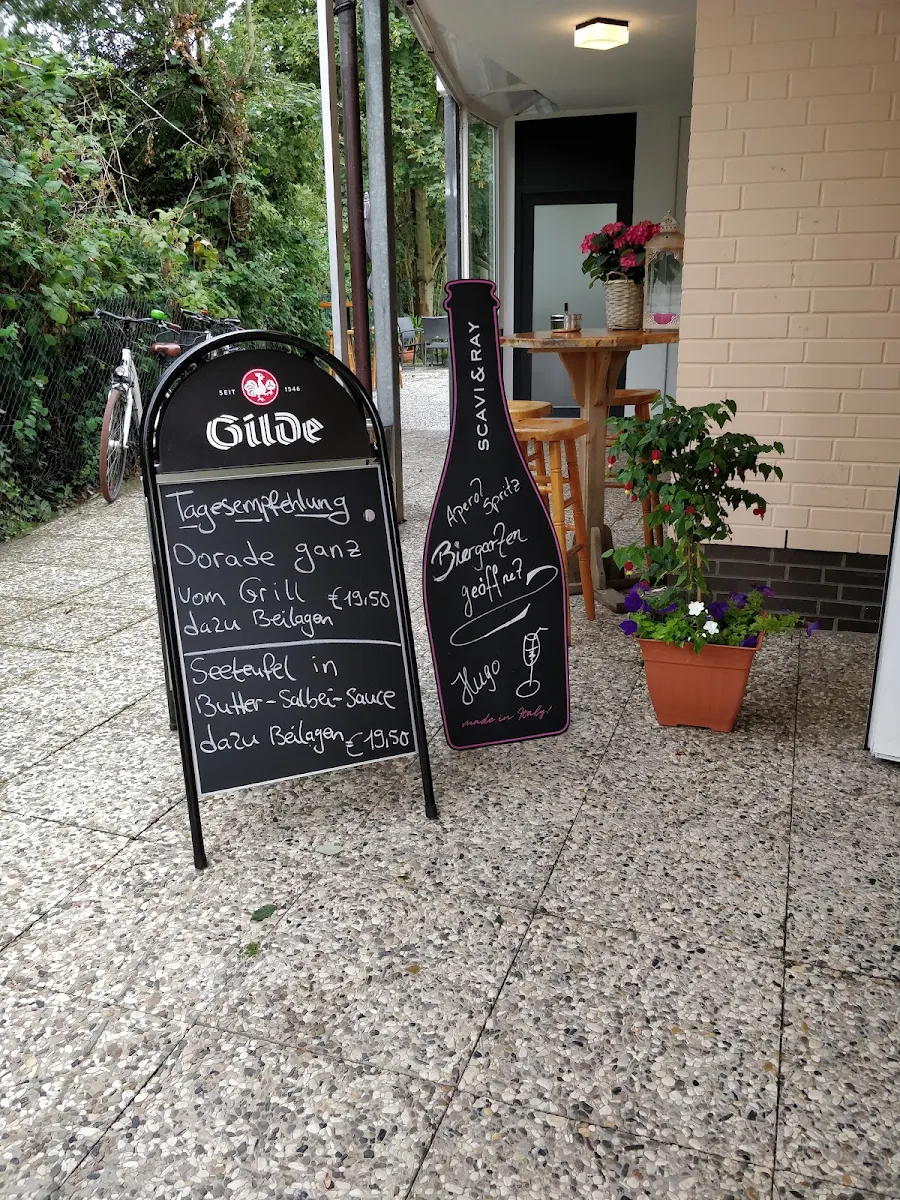 SEIT 1546
Gilde
Tagesempfehlung
Dorade ganz
vom Grill €19,50
dazu Beilagen
Seeteufel in
Butter-Salbei-Sauce
dazu Beilagen €19,50
SCAVI & RAY
Aperol
Spritz
Biergarten
geöffnet
Hugo
made in Italy!